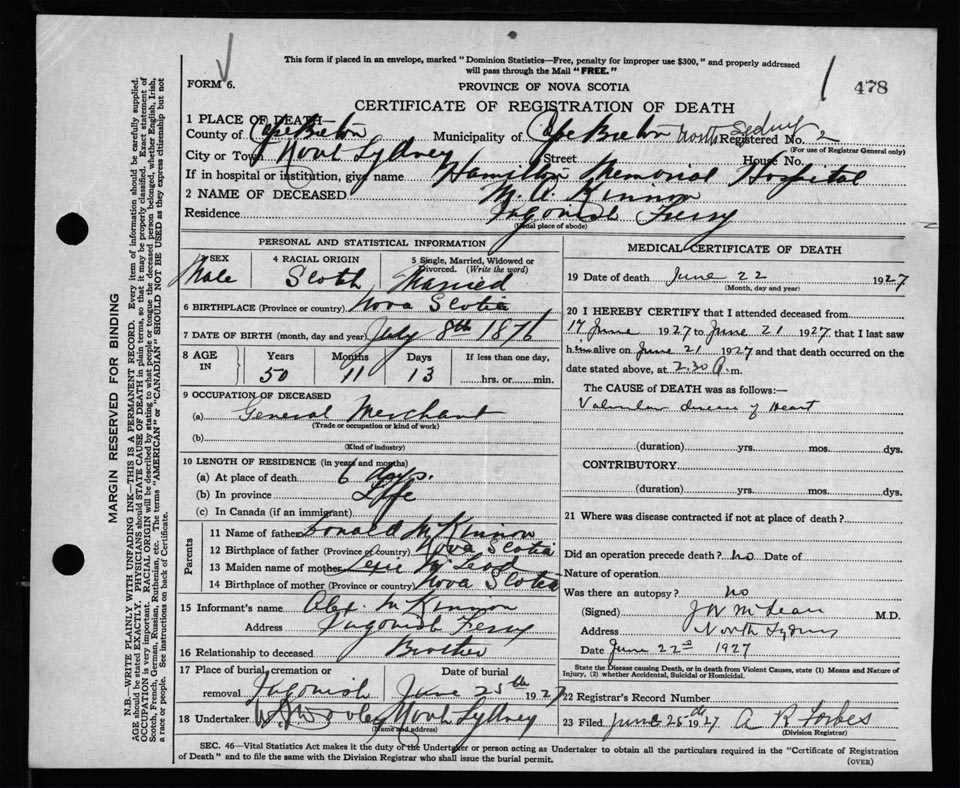 This form if placed in an envelope, marked "Dominion Statistics—Free, penalty for improper use $300," and properly addressed
will pass through the Mail "FREE."
FORM 6.
PROVINCE OF NOVA SCOTIA
478
CERTIFICATE OF REGISTRATION OF DEATH
1 PLACE OF DEATH—
County of Cape Breton Municipality of Cape Breton North Sydney Registered No. 2
(For use of Registrar General only)
City or Town North Sydney Street House No.
If in hospital or institution, give name Hamilton Memorial Hospital
2 NAME OF DECEASED M. A. Kinnon
Residence Ingonish Ferry
(Usual place of abode)
PERSONAL AND STATISTICAL INFORMATION
3 SEX Male
4 RACIAL ORIGIN Scotch
5 Single, Married, Widowed or Divorced. (Write the word) Married
6 BIRTHPLACE (Province or country) Nova Scotia
7 DATE OF BIRTH (month, day and year) July 8th 1876
8 AGE IN Years Months Days If less than one day,
50 11 13 hrs. or min.
9 OCCUPATION OF DECEASED
(a) General Merchant
(Trade or occupation or kind of work)
(b)
(Kind of industry)
10 LENGTH OF RESIDENCE (in years and months)
(a) At place of death 6 days.
(b) In province Life
(c) In Canada (if an immigrant)
Parents
11 Name of father Donald McKinnon
12 Birthplace of father (Province or country) Nova Scotia
13 Maiden name of mother Lexie McLeod
14 Birthplace of mother (Province or country) Nova Scotia
15 Informant's name Alex. McKinnon
Address Ingonish Ferry
16 Relationship to deceased Brother
17 Place of burial, cremation or removal Ingonish
Date of burial June 25th 1927
18 Undertaker North Sydney
(Name and address)
MEDICAL CERTIFICATE OF DEATH
19 Date of death June 22 1927
(Month, day and year)
20 I HEREBY CERTIFY that I attended deceased from
17 June 1927 to June 21 1927 that I last saw
him alive on June 21 1927 and that death occurred on
date stated above, at 2.30 A.m.
The CAUSE of DEATH was as follows:—
Valvular disease of Heart
(duration) yrs. mos. dys.
CONTRIBUTORY
(duration) yrs. mos. dys.
21 Where was disease contracted if not at place of death?
Did an operation precede death? no Date of
Nature of operation
Was there an autopsy? no
(Signed) J W McLean M.D.
Address North Sydney
Date June 22nd 1927
State the Disease causing Death, or in death from Violent Causes, state (1) Means and Nature of
Injury, (2) whether Accidental, Suicidal or Homicidal.
22 Registrar's Record Number
23 Filed June 25th 1927 A R Forbes
(Division Registrar)
SEC. 46—Vital Statistics Act makes it the duty of the Undertaker or person acting as Undertaker to obtain all the particulars required in the "Certificate of Registration
of Death" and to file the same with the Division Registrar who shall issue the burial permit.
(OVER)
MARGIN RESERVED FOR BINDING
N.B.—WRITE PLAINLY WITH UNFADING INK—THIS IS A PERMANENT RECORD. Every item of information should be carefully supplied.
AGE should be stated EXACTLY. PHYSICIANS should STATE CAUSE OF DEATH in plain terms, so that it may be properly classified. Exact statement of
OCCUPATION is very important. RACIAL ORIGIN will be described by stating to what people or tongue the deceased person belonged, whether English, Irish,
Scotch, French, German, Russian, Ruthenian, etc. The terms "AMERICAN" or "CANADIAN" SHOULD NOT BE USED as they express citizenship but not
a race or people. See instructions on back of Certificate.